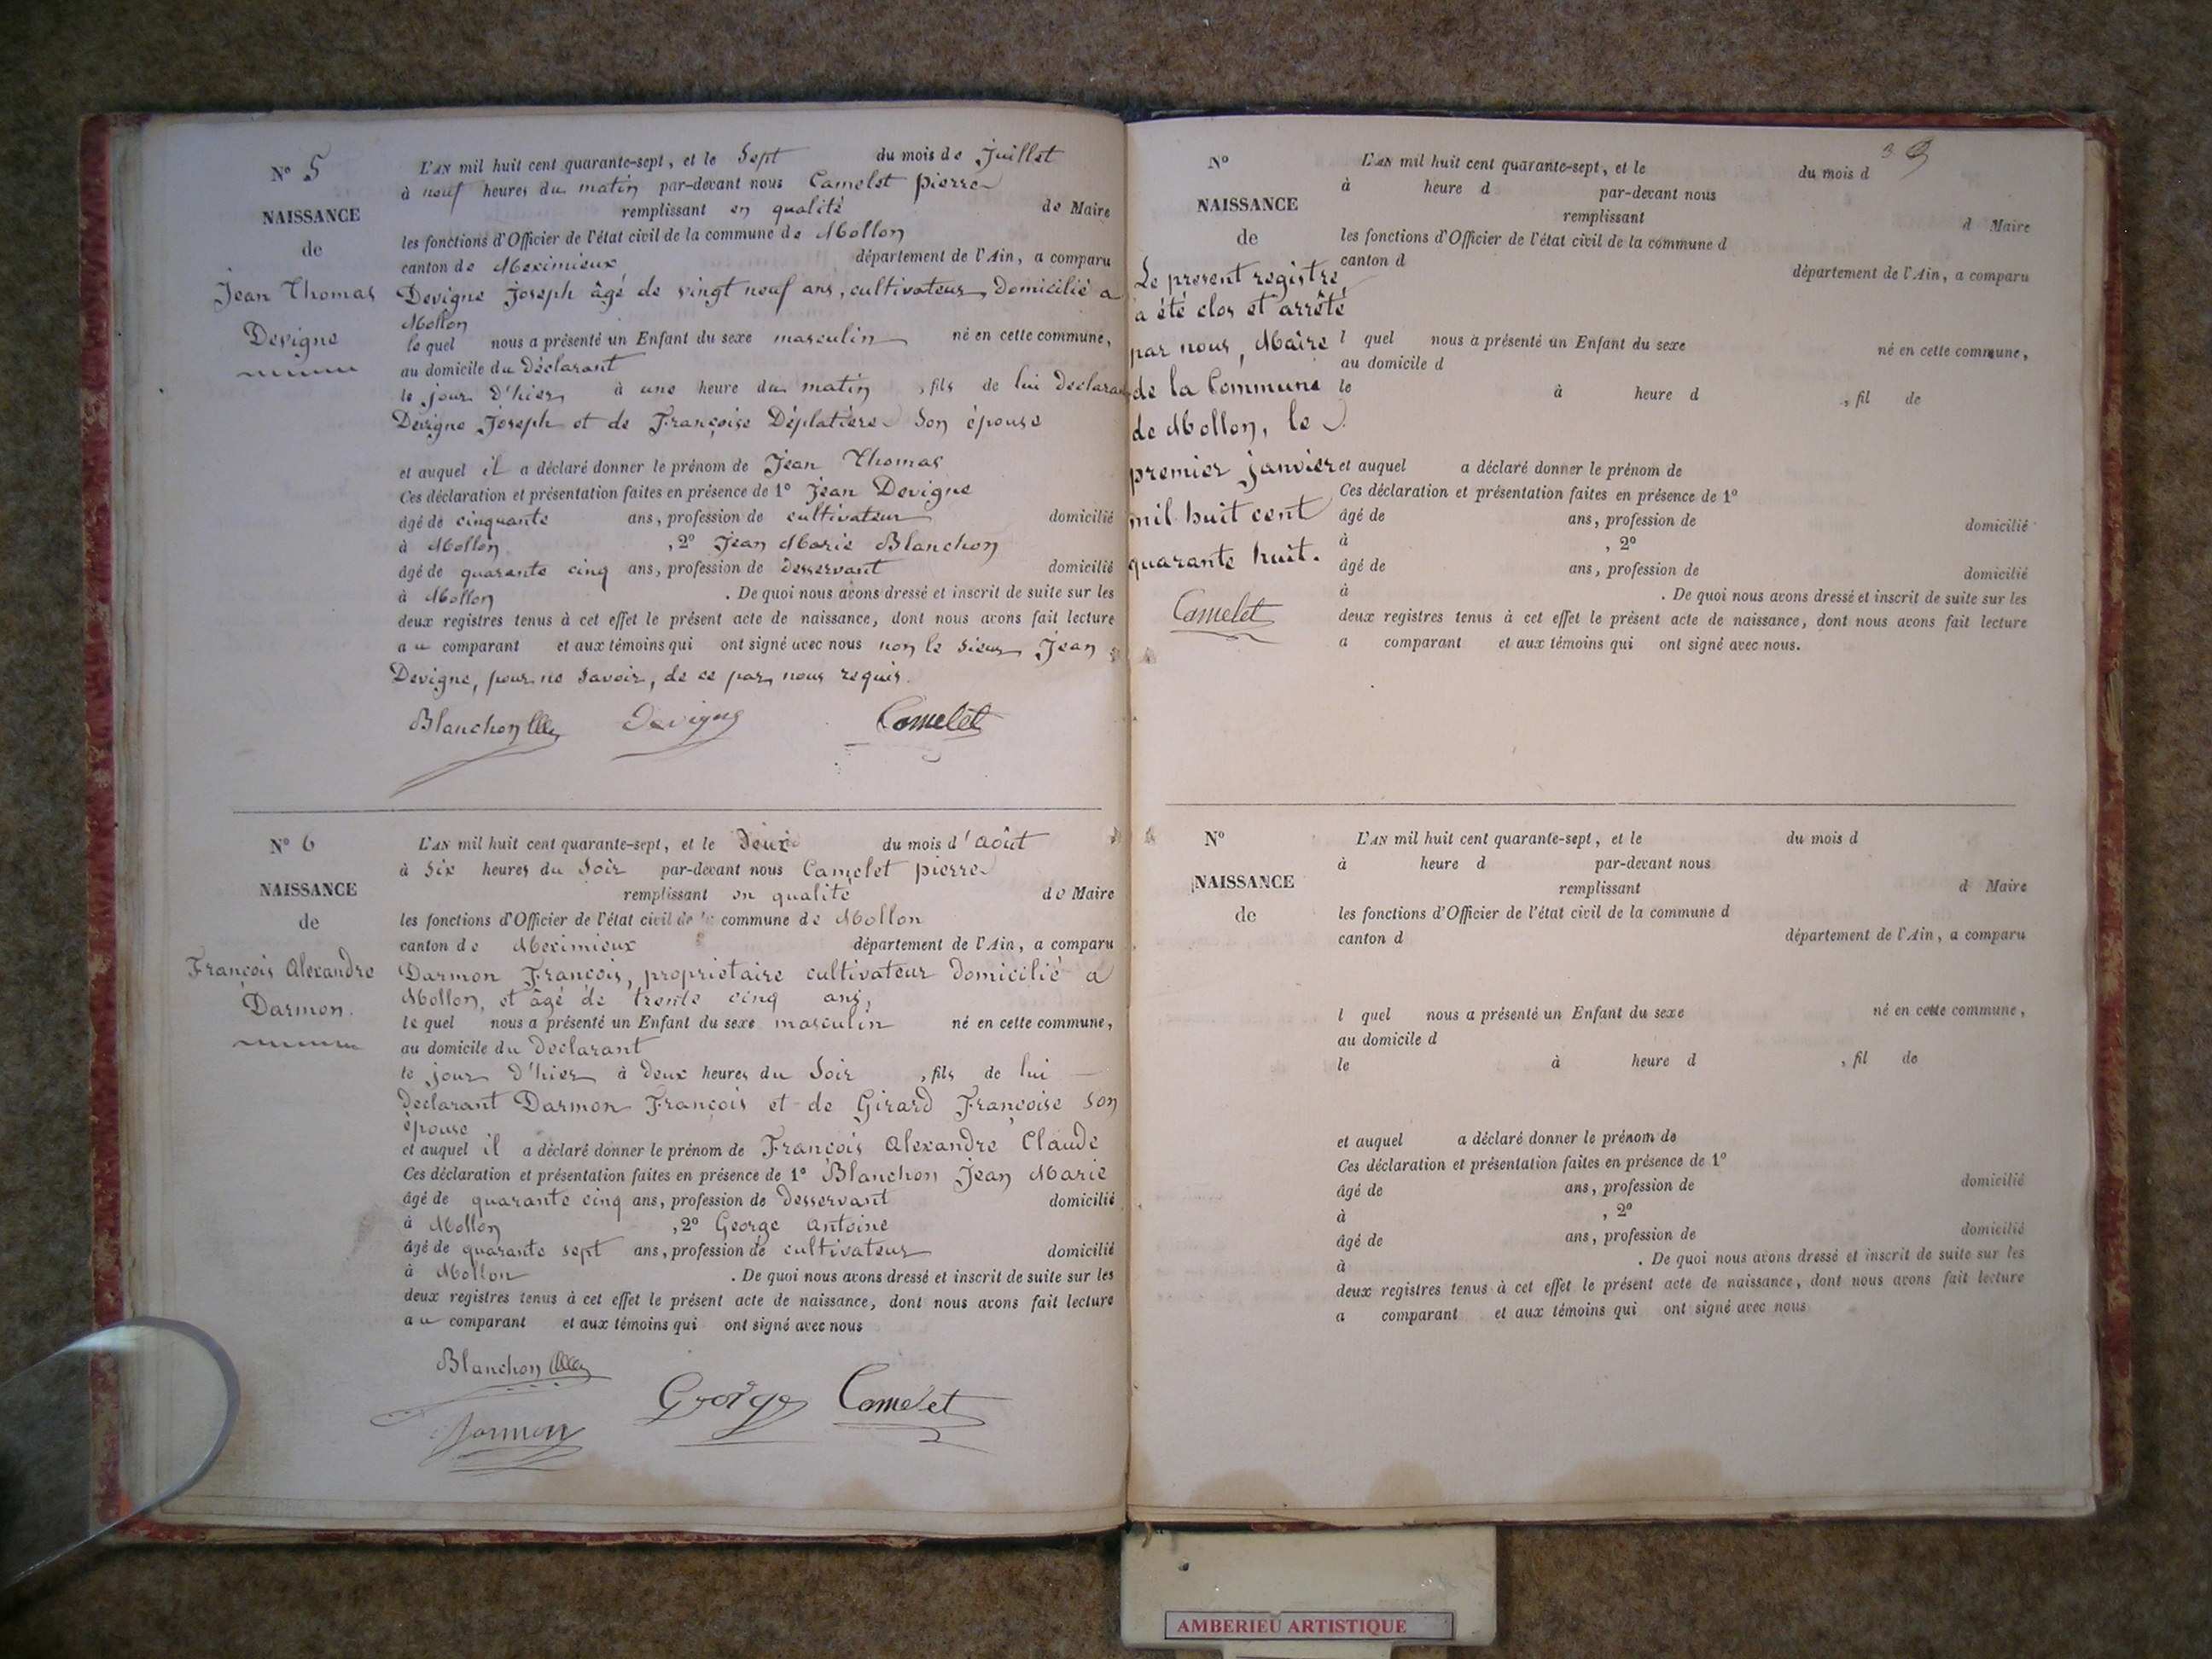 N° 5
NAISSANCE
de
Jean Thomas
Devigne
L'AN mil huit cent quarante-sept, et le Sept du mois de Juillet
à neuf heures du matin par-devant nous Camelet pierre
remplissant en qualité de Maire
les fonctions d'Officier de l'état civil de la commune de Mollon
canton de Meximieux département de l'Ain, a comparu
Devigne Joseph âgé de vingt neuf ans, cultivateur, Domicilié a
Mollon
le quel nous a présenté un Enfant du sexe masculin né en cette commune,
au domicile du Déclarant
le jour D'hier à une heure du matin, fils de lui Declarant
Devigne Joseph et de Françoise Déplatière Son épouse
et auquel il a déclaré donner le prénom de Jean Thomas
Ces déclaration et présentation faites en présence de 1° Jean Devigne
âgé de cinquante ans, profession de cultivateur domicilié
à Mollon, 2° Jean Marie Blanchon
âgé de quarante cinq ans, profession de Desservant domicilié
à Mollon. De quoi nous avons dressé et inscrit de suite sur les
deux registres tenus à cet effet le présent acte de naissance, dont nous avons fait lecture
au comparant et aux témoins qui ont signé avec nous non le Sieur Jean
Devigne, pour ne Savoir, de ce par nous requis.
Blanchon Devigne Camelet
N° 6
NAISSANCE
de
François Alexandre
Darmon.
L'AN mil huit cent quarante-sept, et le Deux du mois d'août
à Six heures du Soir par-devant nous Camelet pierre
remplissant en qualité de Maire
les fonctions d'Officier de l'état civil de la commune de Mollon
canton de Meximieux département de l'Ain, a comparu
Darmon François, proprietaire cultivateur Domicilié a
Mollon, et âgé de trente cinq ans,
le quel nous a présenté un Enfant du sexe masculin né en cette commune,
au domicile du Declarant
le jour D'hier à Deux heures du Soir, fils de lui
Declarant Darmon François et de Girard Françoise Son
épouse
et auquel il a déclaré donner le prénom de François Alexandre Claude
Ces déclaration et présentation faites en présence de 1° Blanchon Jean Marie
âgé de quarante cinq ans, profession de Desservant domicilié
à Mollon, 2° George Antoine
âgé de quarante sept ans, profession de cultivateur domicilié
à Mollon. De quoi nous avons dressé et inscrit de suite sur les
deux registres tenus à cet effet le présent acte de naissance, dont nous avons fait lecture
au comparant et aux témoins qui ont signé avec nous
Blanchon
George Camelet
Darmon
N°
NAISSANCE
de
Le present registre
a été clos et arrêté
par nous, Maire
de la Commune
de Mollon, le
premier janvier
mil huit cent
quarante huit.
Camelet
L'AN mil huit cent quarante-sept, et le du mois d
à heure d par-devant nous
remplissant d Maire
les fonctions d'Officier de l'état civil de la commune d
canton d département de l'Ain, a comparu
l quel nous a présenté un Enfant du sexe né en cette commune,
au domicile d
le à heure d, fil de
et auquel a déclaré donner le prénom de
Ces déclaration et présentation faites en présence de 1°
âgé de ans, profession de domicilié
à, 2°
âgé de ans, profession de domicilié
à. De quoi nous avons dressé et inscrit de suite sur les
deux registres tenus à cet effet le présent acte de naissance, dont nous avons fait lecture
a comparant et aux témoins qui ont signé avec nous.
N°
NAISSANCE
de
L'AN mil huit cent quarante-sept, et le du mois d
à heure d par-devant nous
remplissant d Maire
les fonctions d'Officier de l'état civil de la commune d
canton d département de l'Ain, a comparu
l quel nous a présenté un Enfant du sexe né en cette commune,
au domicile d
le à heure d, fil de
et auquel a déclaré donner le prénom de
Ces déclaration et présentation faites en présence de 1°
âgé de ans, profession de domicilié
à, 2°
âgé de ans, profession de domicilié
à. De quoi nous avons dressé et inscrit de suite sur les
deux registres tenus à cet effet le présent acte de naissance, dont nous avons fait lecture
a comparant et aux témoins qui ont signé avec nous
AMBERIEU ARTISTIQUE